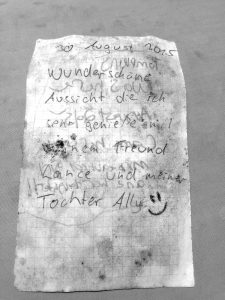 30 August 2015
Wunderschöne
Aussicht die ich
sehr genieße mit
meinem Freund
Lance und meiner
Tochter Ally